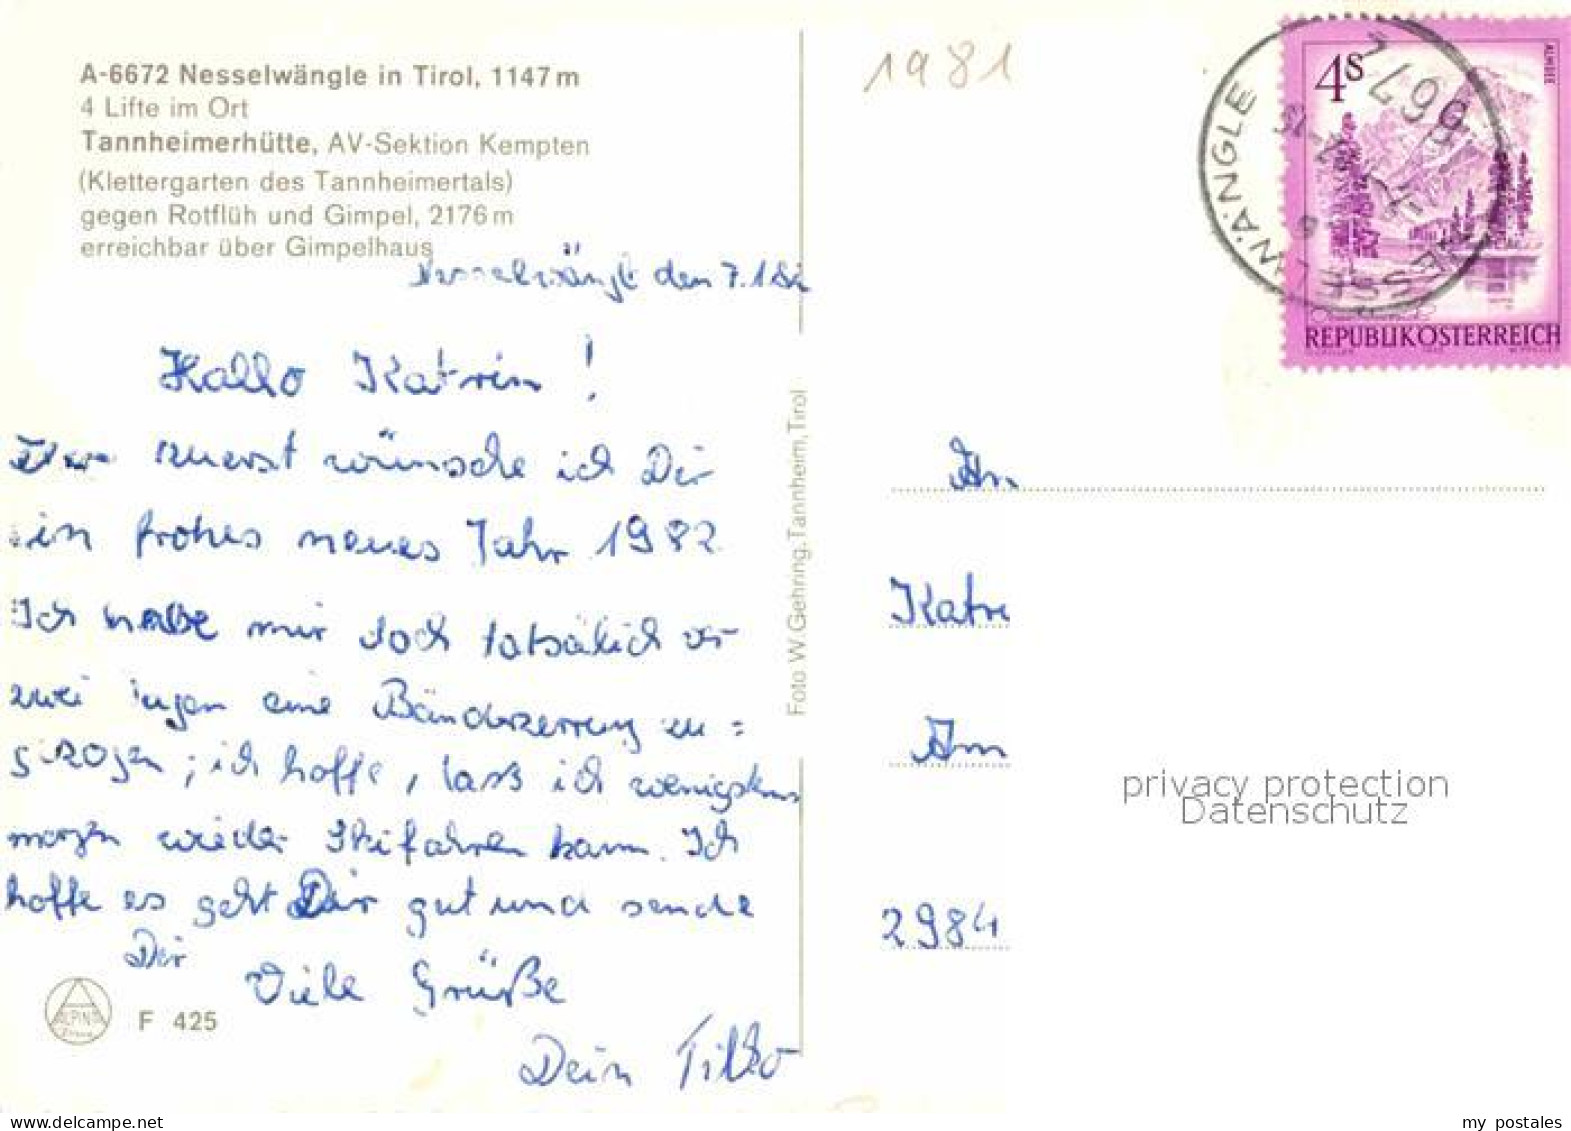 A-6672 Nesselwängle in Tirol, 1147 m
4 Lifte im Ort
Tannheimerhütte, AV-Sektion Kempten
(Klettergarten des Tannheimertals)
gegen Rotflüh und Gimpel, 2176 m
erreichbar über Gimpelhaus
Nesselwängle den 7.1.82
Hallo Katrin!
zuerst wünsche ich Dir
ein frohes neues Jahr 1982
Ich habe mir doch tatsälich vor
zwei eine Bänderzerrung zu=
gezogen; ich hoffe, daß ich wenigstens
morgen wieder Skifahren kann. Ich
hoffe es geht Dir gut und sende
Dir
Viele Grüße
Dein Tilko
ALPINA
F 425
Foto W. Gehring, Tannheim, Tirol
1981
6672
NESSELWÄNGLE
4S
ALMSEE
REPUBLIK ÖSTERREICH
An
Katri
Am
2984
privacy protection
Datenschutz
delcampe.net
my_postales